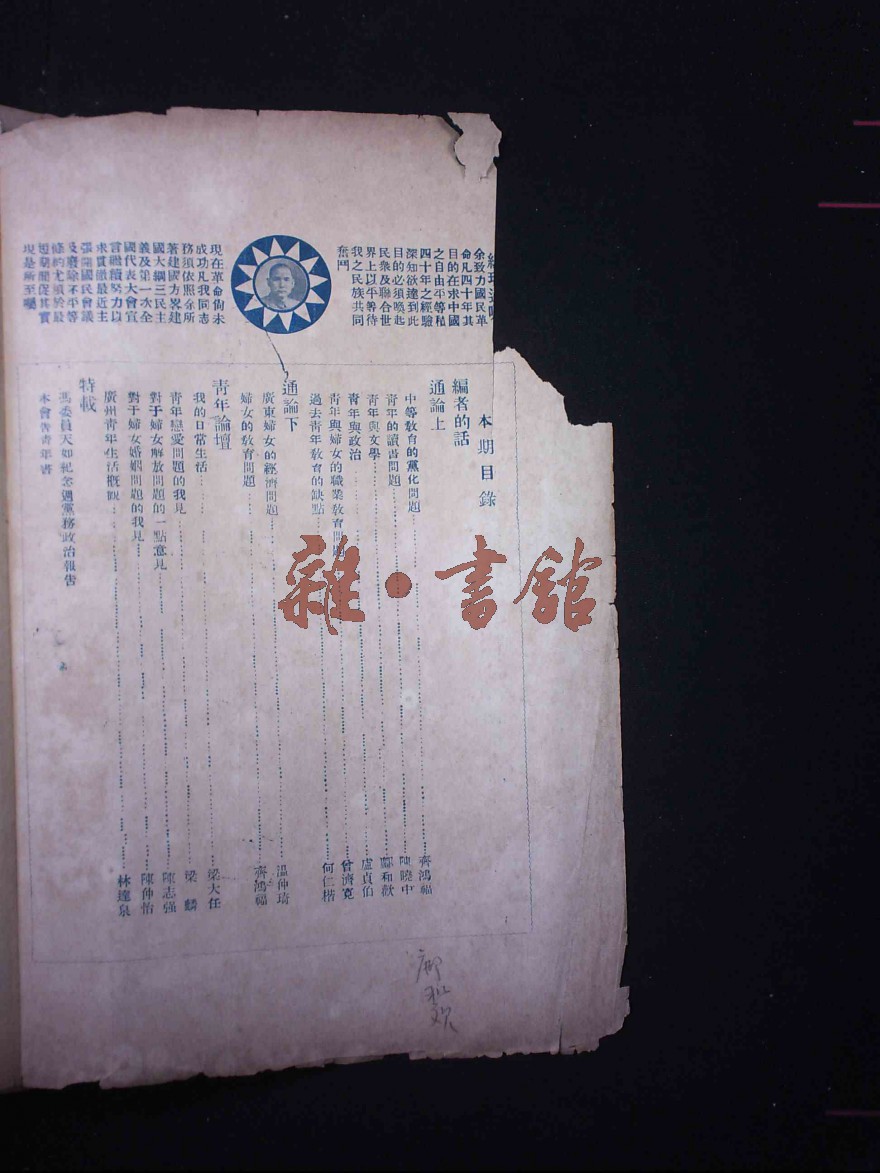 余致力國民革
命凡四十年其
目的在求中國
之自由平等積
四十年之經驗
深知欲達到此
目的必須喚起
民衆及聯合世
界上以平等待
我之民族共同
奮鬥
現在革命尙未
成功凡我同志
務須依照余所
著建國方畧建
國大綱三民主
義及第一次全
國代表大會宣
言繼續努力以
求貫徹最近主
張開國民會議
及廢除不平等
條約尤須於最
短期間促其實
現是所至囑
本期目錄
編者的話
通論上
中等敎育的黨化問題 齊鴻福
靑年的讀書問題 陳曉中
靑年與文學 鄺和歡
靑年與政治 盧貞伯
靑年與婦女的職業敎育問題 曾濟寬
過去靑年敎育的缺點 何仁楷
通論下
廣東婦女的經濟問題 溫仲琦
婦女的敎育問題 齊鴻福
靑年論壇
我的日常生活 梁大任
靑年戀愛問題的我見 梁麟
對于婦女解放問題的一點意見 陳志强
對于婦女婚姻問題的我見 陳仲怡
廣州靑年生活槪觀 林達泉
特載
馮委員天如紀念週黨務政治報吿
本會吿靑年書
雜·書館